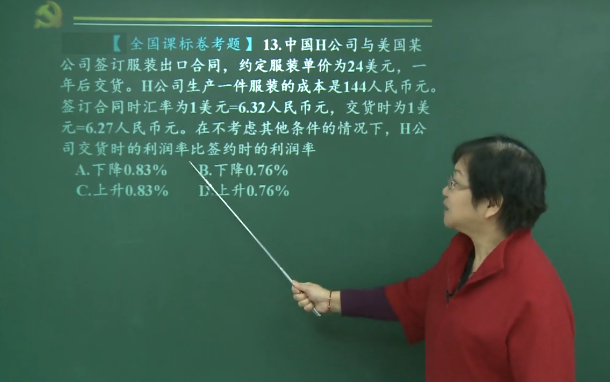 【 全国课标卷考题 】 13.中国H公司与美国某
公司签订服装出口合同，约定服装单价为24美元，一
年后交货。H公司生产一件服装的成本是144人民币元。
签订合同时汇率为1美元=6.32人民币元，交货时为1美
元=6.27人民币元。在不考虑其他条件的情况下，H公
司交货时的利润率比签约时的利润率
A.下降0.83% B.下降0.76%
C.上升0.83% D.上升0.76%